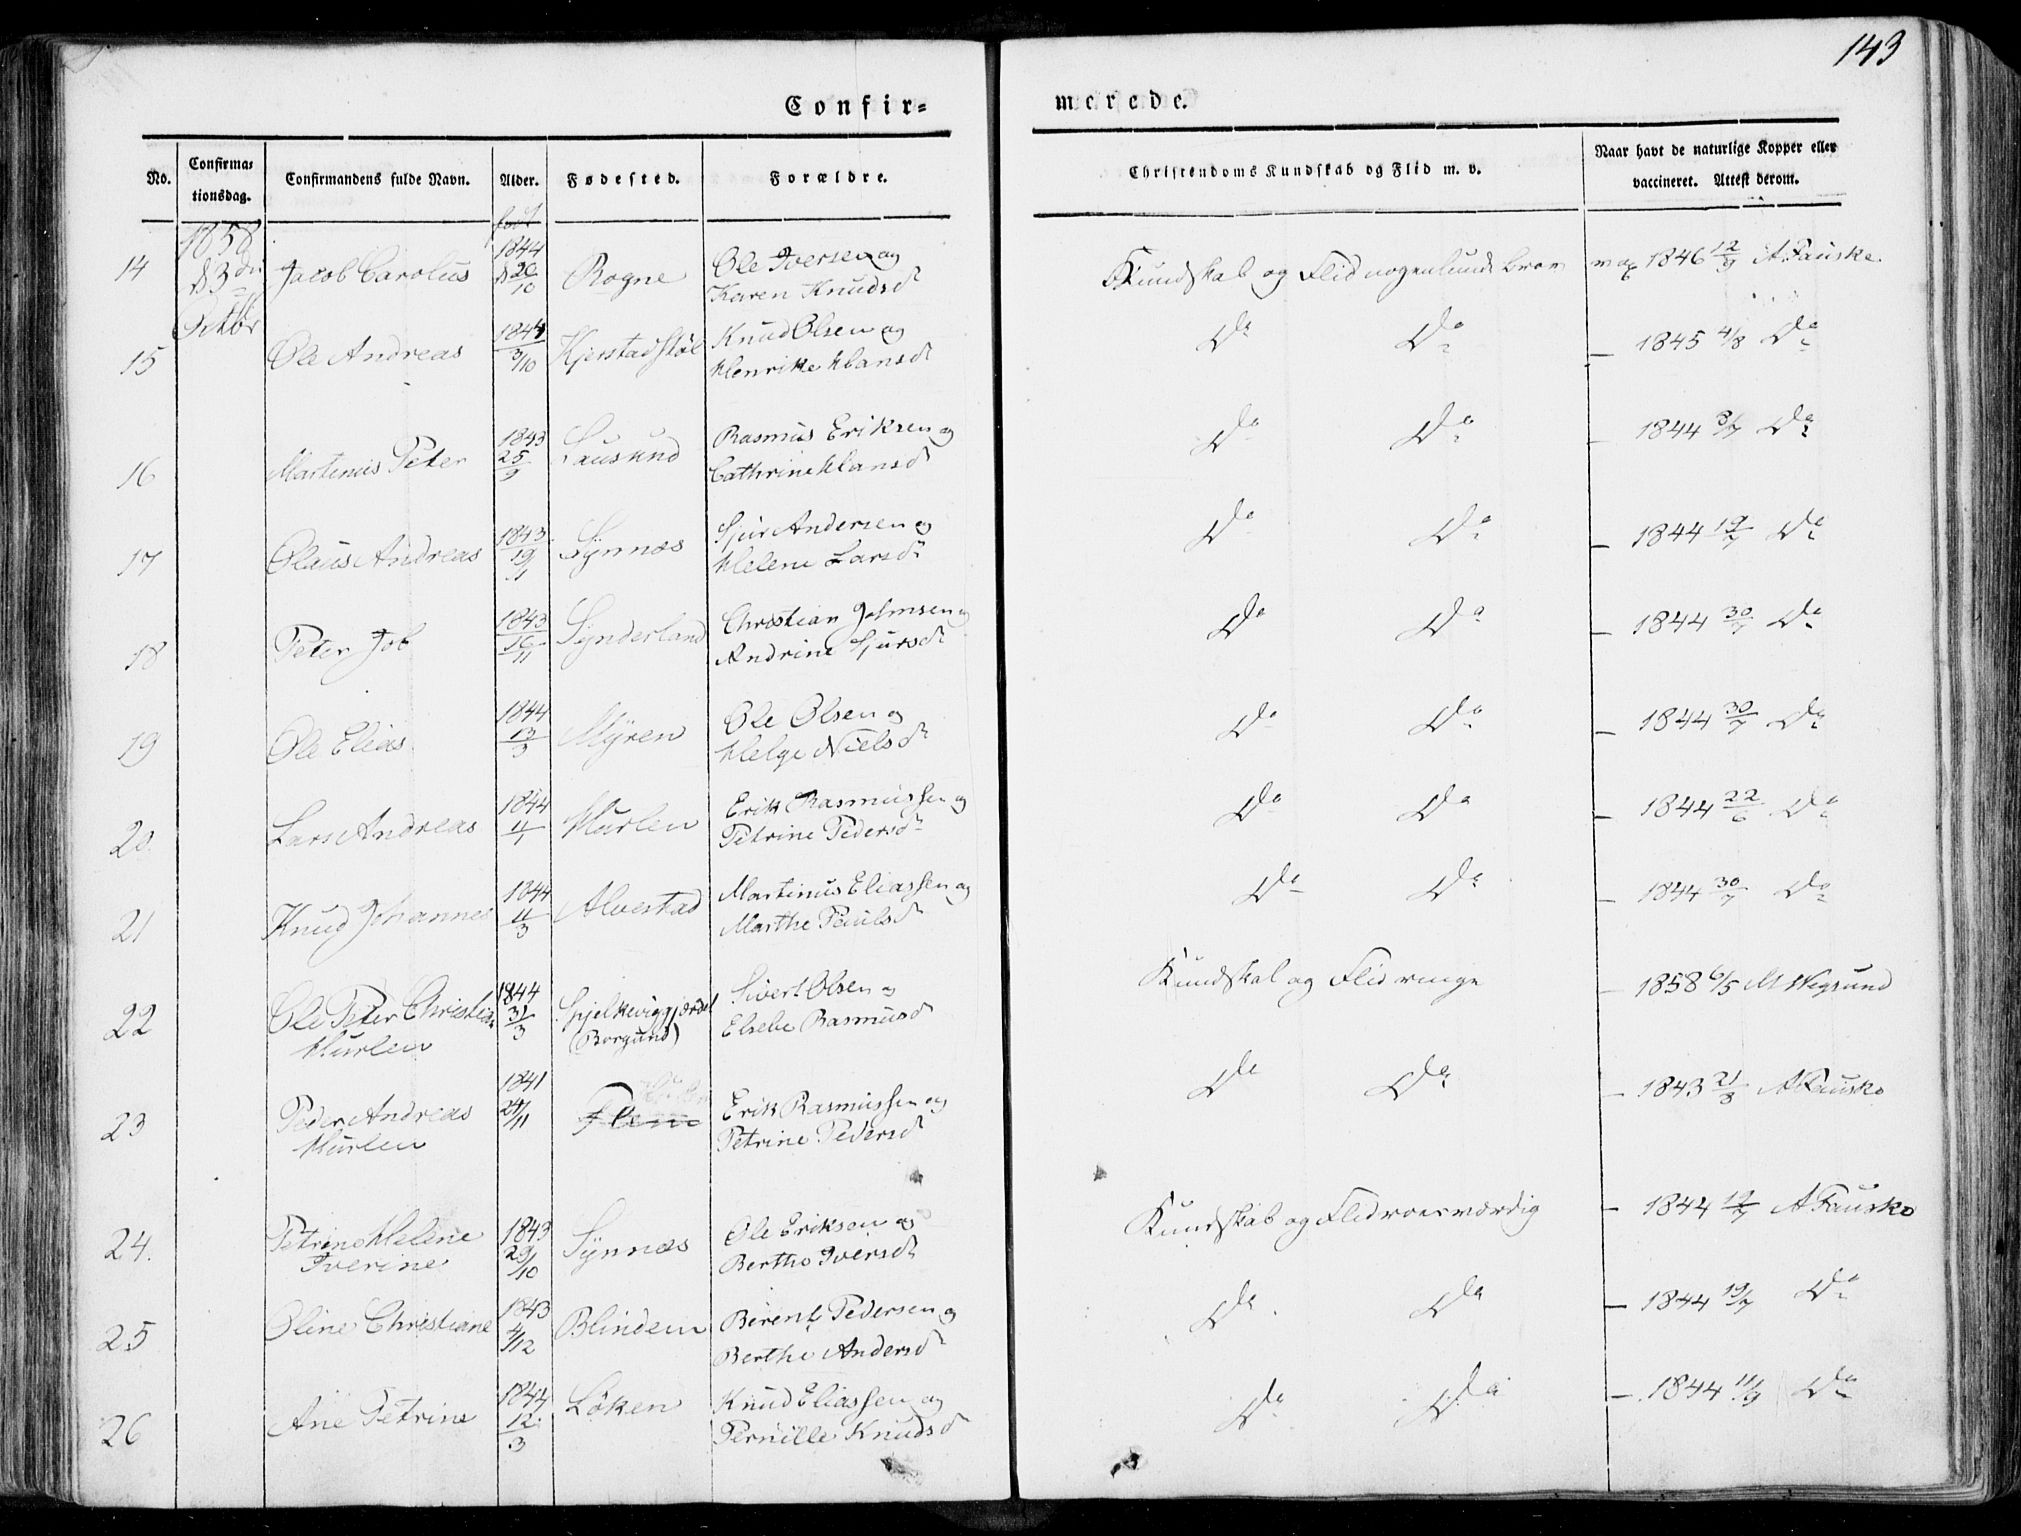 143
Confir= merede.
No. Confirma= tionsdag. Confirmandens fulde Navn. Alder. Fødested. Forældre. Christendoms Kundskab og Flid m. v. Naar havt de naturlige Kopper eller vaccineret. Attest derom.
født
1858
14 Jacob Carolus 1844 20/10 Rogne Ole Iversen og Karen Knudsd Kundskab og Flid nogenlunde 1846 12/9 A Fauske
Oktbr
15 Ole Andreas 1844 3/10 Kjerstad Ole Knud Olsen og Henrike Hansd Do Do — 1845 4/8 Do
16 Martinus Peter 1843 25/9 Lausund Rasmus Eriksen og Cathrine Hansd Do Do — 1844 3/7 Do
17 Olaus Andreas 1843 19/1 Synnæs Sjur Andersen og Helene Larsd Do Do — 1844 19/7 Do
18 Peter Job 1843 16/11 Synderland Christian Johnsen og Andrine Sjursd Do Do — 1844 30/7 Do
19 Ole Elias 1844 13/3 Myren Ole Olsen og Helge Nielsd Do Do — 1844 30/7 Do
20 Lars Andreas 1844 4/1 Hurlen Erik Rasmussen og Petrine Pedersd Do Do — 1844 22/6 Do
21 Knud Johannes 1844 11/3 Alvestad Martinus Eliassen og Marthe Paulsd Do Do — 1844 30/7 Do
22 Ole Peter Christian Hurlen 1844 31/3 Spjelkevig (Borgund) Sivert Olsen og Elsebe Rasmusd Kundskab og Flid ringe — 1858 6/5 M Wegsund
23 Peder Andreas Hurlen 1841 24/11 Flem Erik Rasmussen og Petrine Pedersd Do Do — 1843 21/8 A Fauske
24. Petrine Helene Iverine 1843 29/10 Synnæs Ole Eriksen og Berthe Iversd Kundskab og Flid roesværdig — 1844 19/7 A Fauske
25 Oline Christiane 1843 4/12 Blindem Berent Pedersen og Berthe Andersd Do Do — 1844 19/7 Do
26 Ane Petrine 1844 12/3 Løken Knud Eliassen og Pernille Knudsd Do Do — 1844 11/9 Do